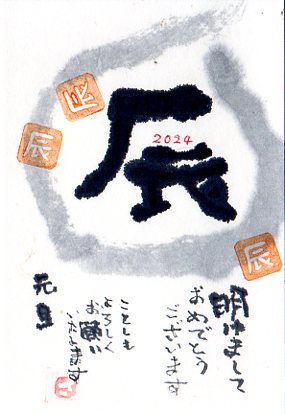 辰
2024
辰
辰
辰
明けまして
おめでとう
ございます
ことしも
よろしく
お願い
いたします
元旦